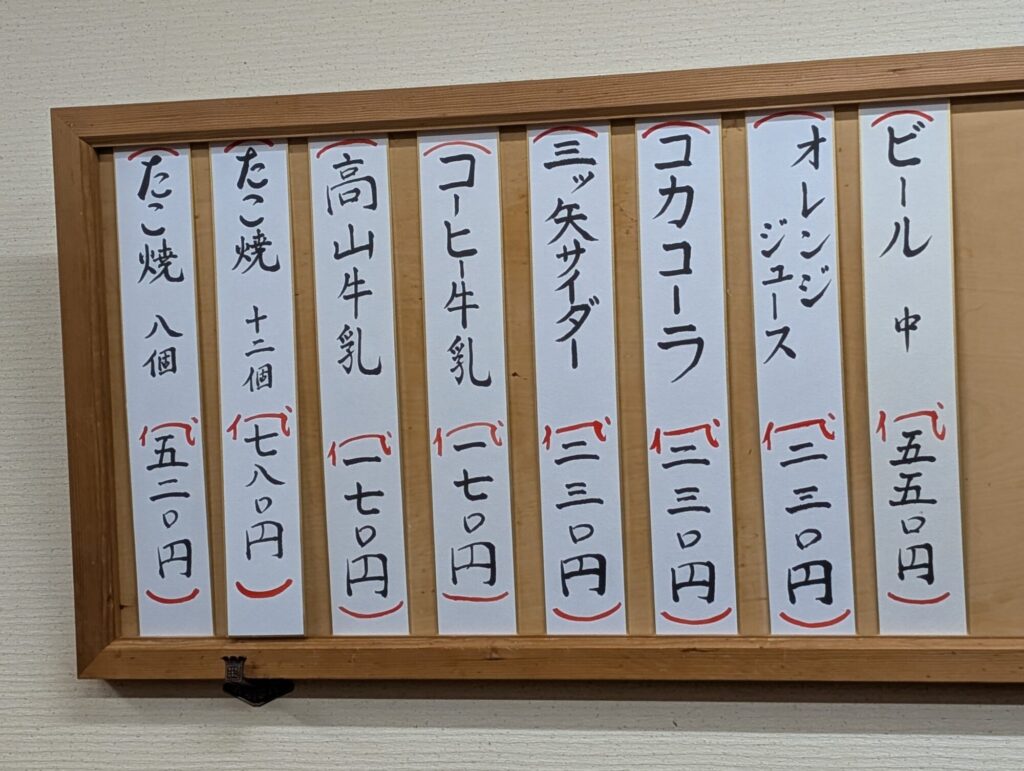 ビール 中 五五〇円
オレンジ
ジュース 二三〇円
コカコーラ 二三〇円
三ッ矢サイダー 二三〇円
コーヒー牛乳 一七〇円
高山牛乳 一七〇円
たこ焼 十二個 七八〇円
たこ焼 八個 五二〇円